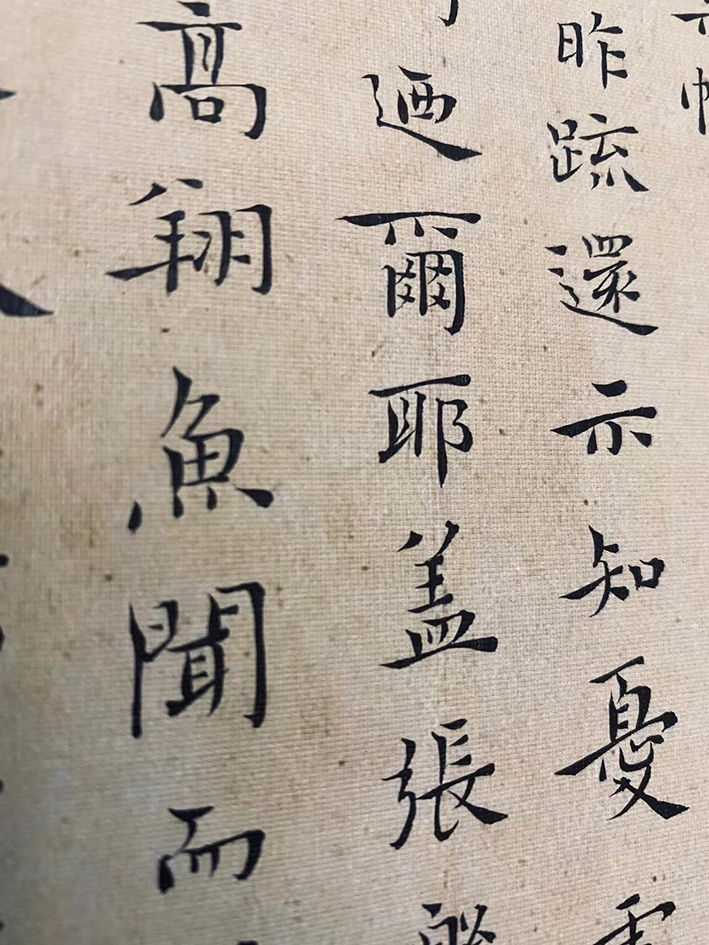 昨疏還示知憂
迺爾耶盖張
高翔魚聞而